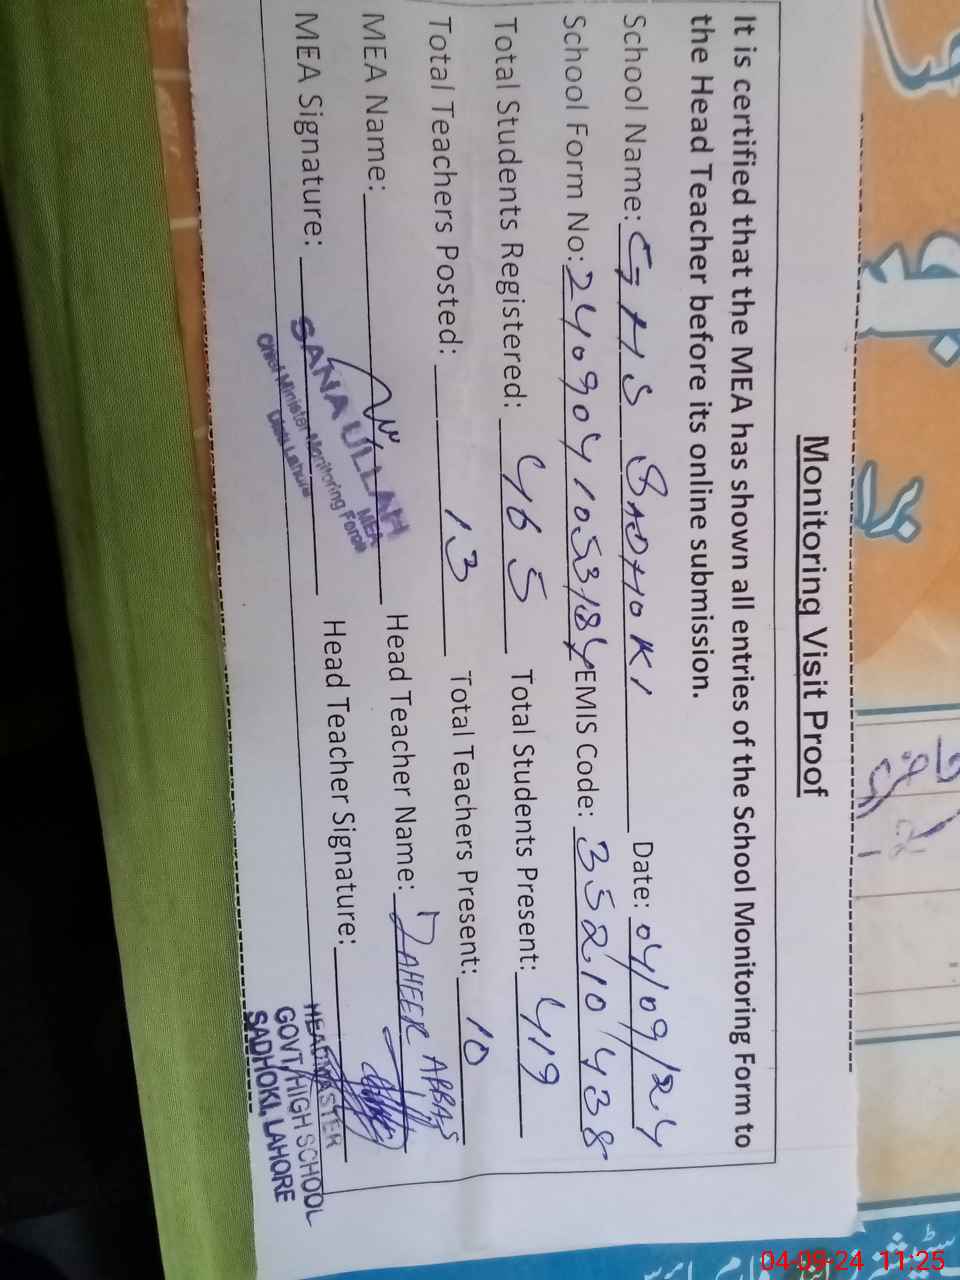 Monitoring Visit Proof
It is certified that the MEA has shown all entries of the School Monitoring Form to
the Head Teacher before its online submission.
School Name: GHS SADHOKI Date: 04/09/24
School Form No: 2409041053184 EMIS Code: 35210438
Total Students Registered: 465 Total Students Present: 419
Total Teachers Posted: 13 Total Teachers Present: 10
MEA Name: Head Teacher Name: ZAHEER ABBAS
MEA Signature: Head Teacher Signature:
SANA ULLAH
MEA
Chief Minister Monitoring Force
Lahore
HEADMASTER
GOVT. HIGH SCHOOL
SADHOKI, LAHORE
04-09-24 11:25